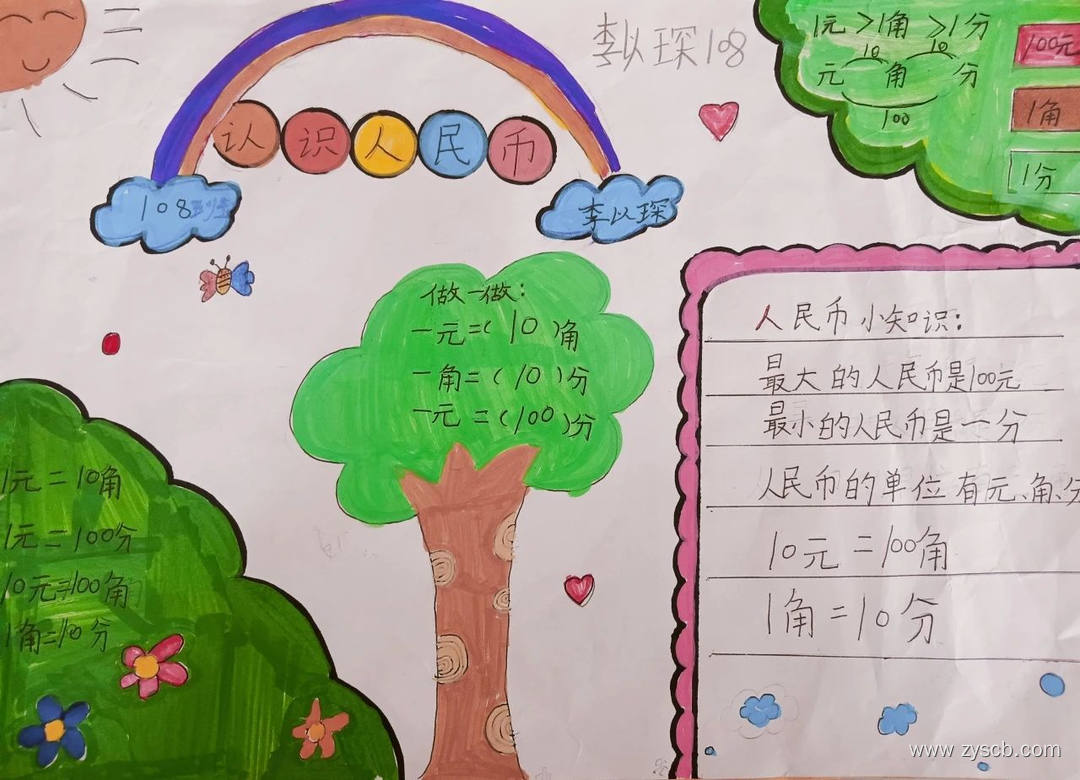 李以琛108
认识人民币
108班
李以琛
1元>1角>1分
10 10
元 角 分
100
100元
1角
1分
做一做:
一元=(10)角
一角=(10)分
一元=(100)分
1元=10角
1元=100分
10元=100角
1角=10分
人民币小知识:
最大的人民币是100元
最小的人民币是一分
人民币的单位有元、角、分
10元=100角
1角=10分
www.zyscb.com